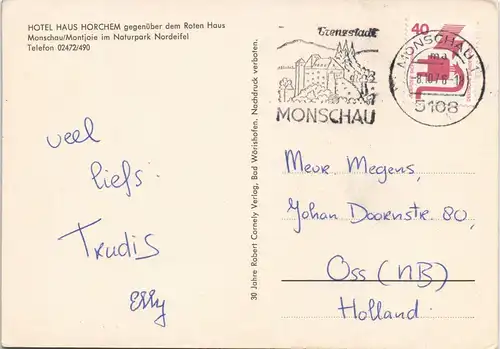 HOTEL HAUS HORCHEM gegenüber dem Roten Haus
Monschau/Montjoie im Naturpark Nordeifel
Telefon 02472/490
veel
liefs
Trudis
Elly
30 Jahre Robert Cornely Verlag, Bad Wörishofen. Nachdruck verboten.
Grenzstadt
MONSCHAU
40
MONSCHAU 1
5108
Mevr Megens,
Johan Doornstr 80,
Oss (NB)
Holland.